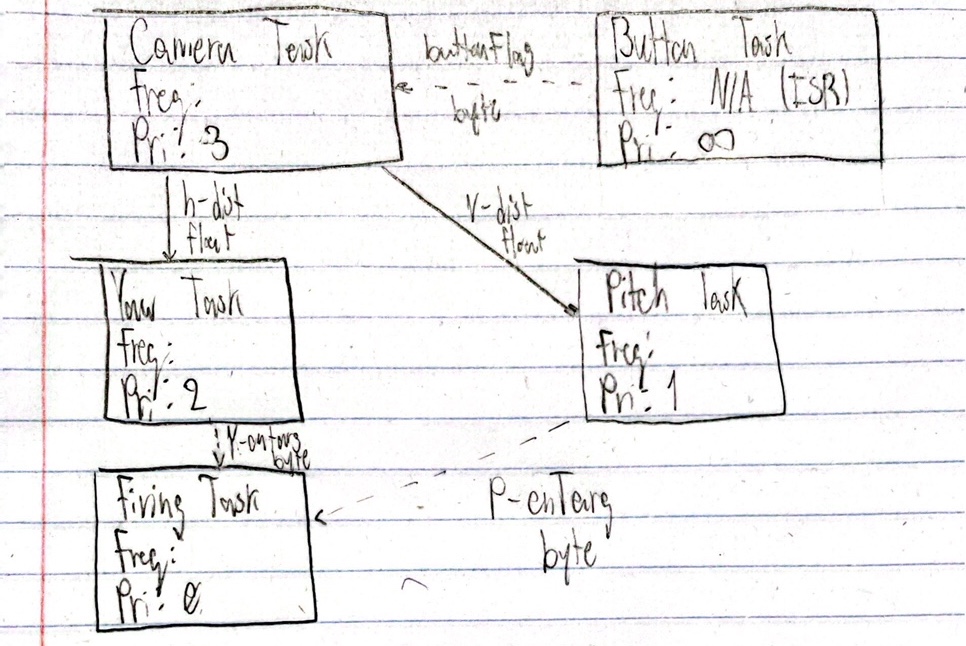 Camera Task
Freq:
Pri: 3
buttonFlag
byte
Button Task
Freq: N/A (ISR)
Pri: ∞
h-dist
float
v-dist
float
Yaw Task
Freq:
Pri: 2
Pitch Task
Freq:
Pri: 1
Y-ontarg
byte
Firing Task
Freq:
Pri: 0
P-onTarg
byte